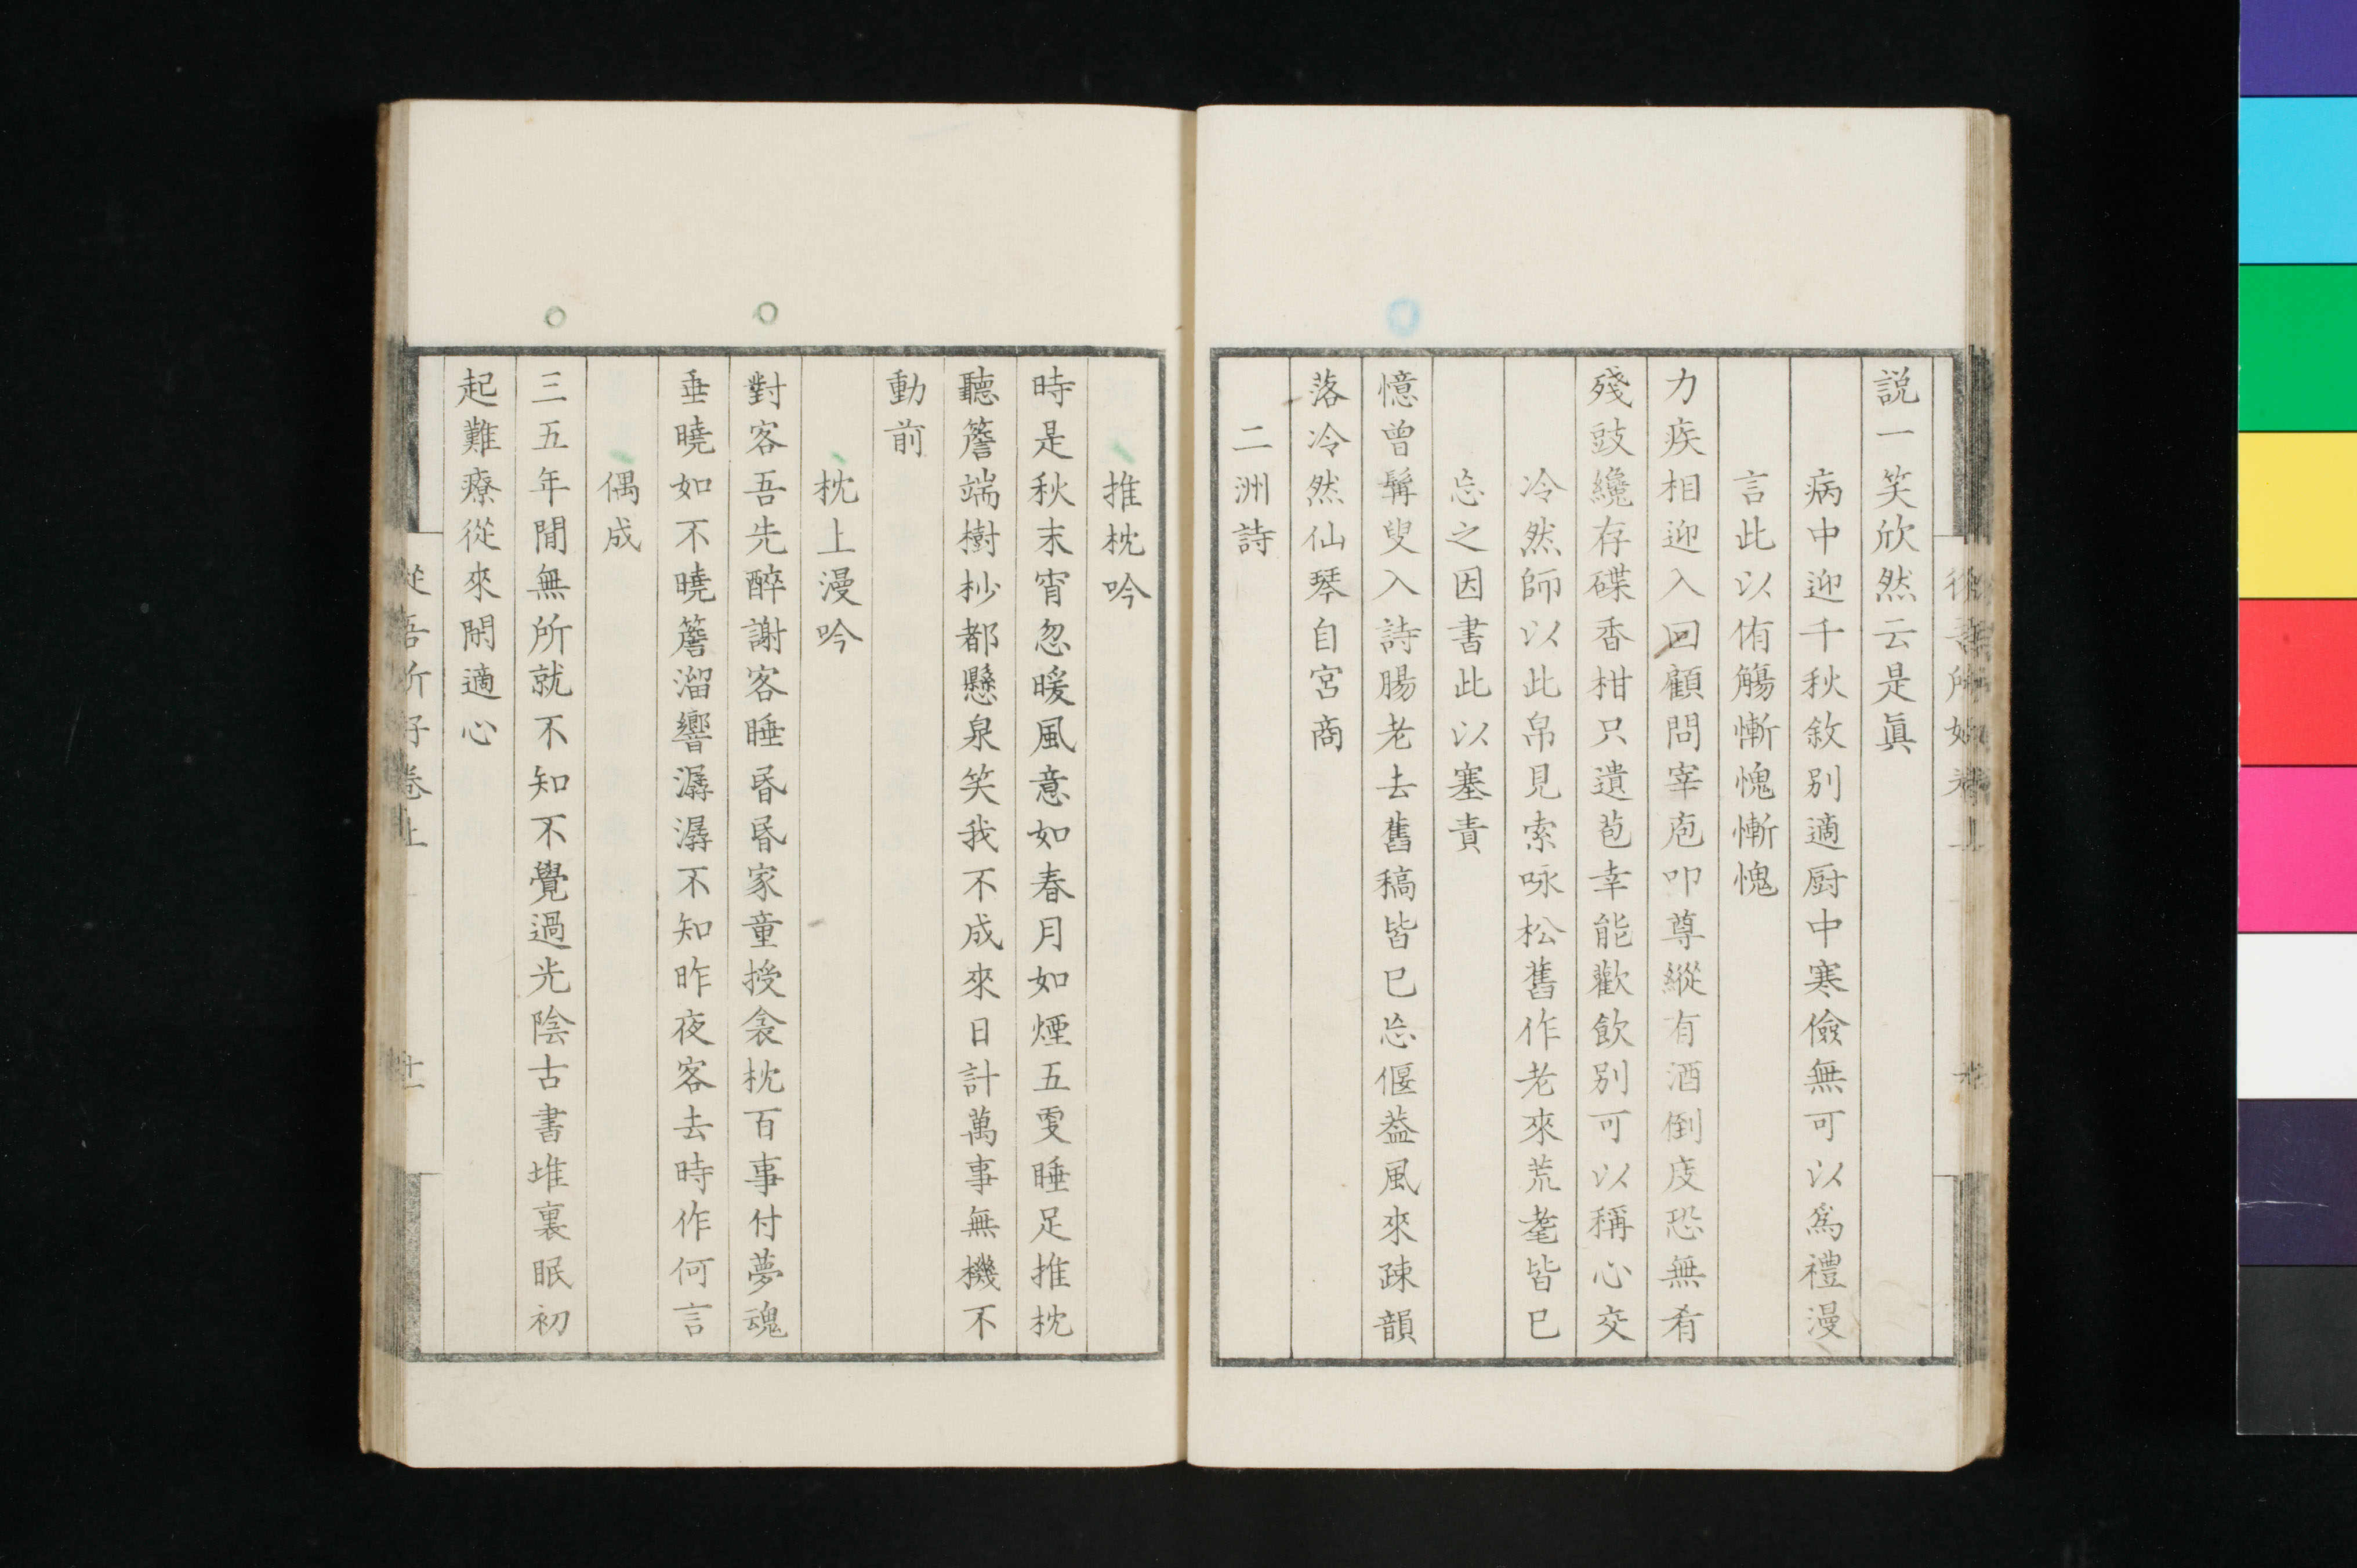 説一笑欣然云是眞
病中迎千秋敘別適厨中寒儉無可以爲禮漫
言此以侑觴慚愧慚愧
力疾相迎入回顧問宰庖叩尊縱有酒倒庋恐無肴
殘豉纔存碟香柑只遺苞幸能歡飲別可以稱心交
冷然師以此帛見索咏松舊作老來荒耄皆已
忘之因書此以塞責
憶曾髯叟入詩腸老去舊稿皆已忘偃葢風來疎韻
落冷然仙琴自宮商
二洲詩
推枕吟
時是秋末宵忽暖風意如春月如煙五雯睡足推枕
聽簷端樹杪都懸泉笑我不成來日計萬事無機不
動前
枕上漫吟
對客吾先醉謝客睡昬昬家童授衾枕百事付夢魂
垂曉如不曉簷溜響潺潺不知昨夜客去時作何言
偶成
三五年間無所就不知不覺過光陰古書堆裏眠初
起難療從來閑適心
從吾所好卷上
十一